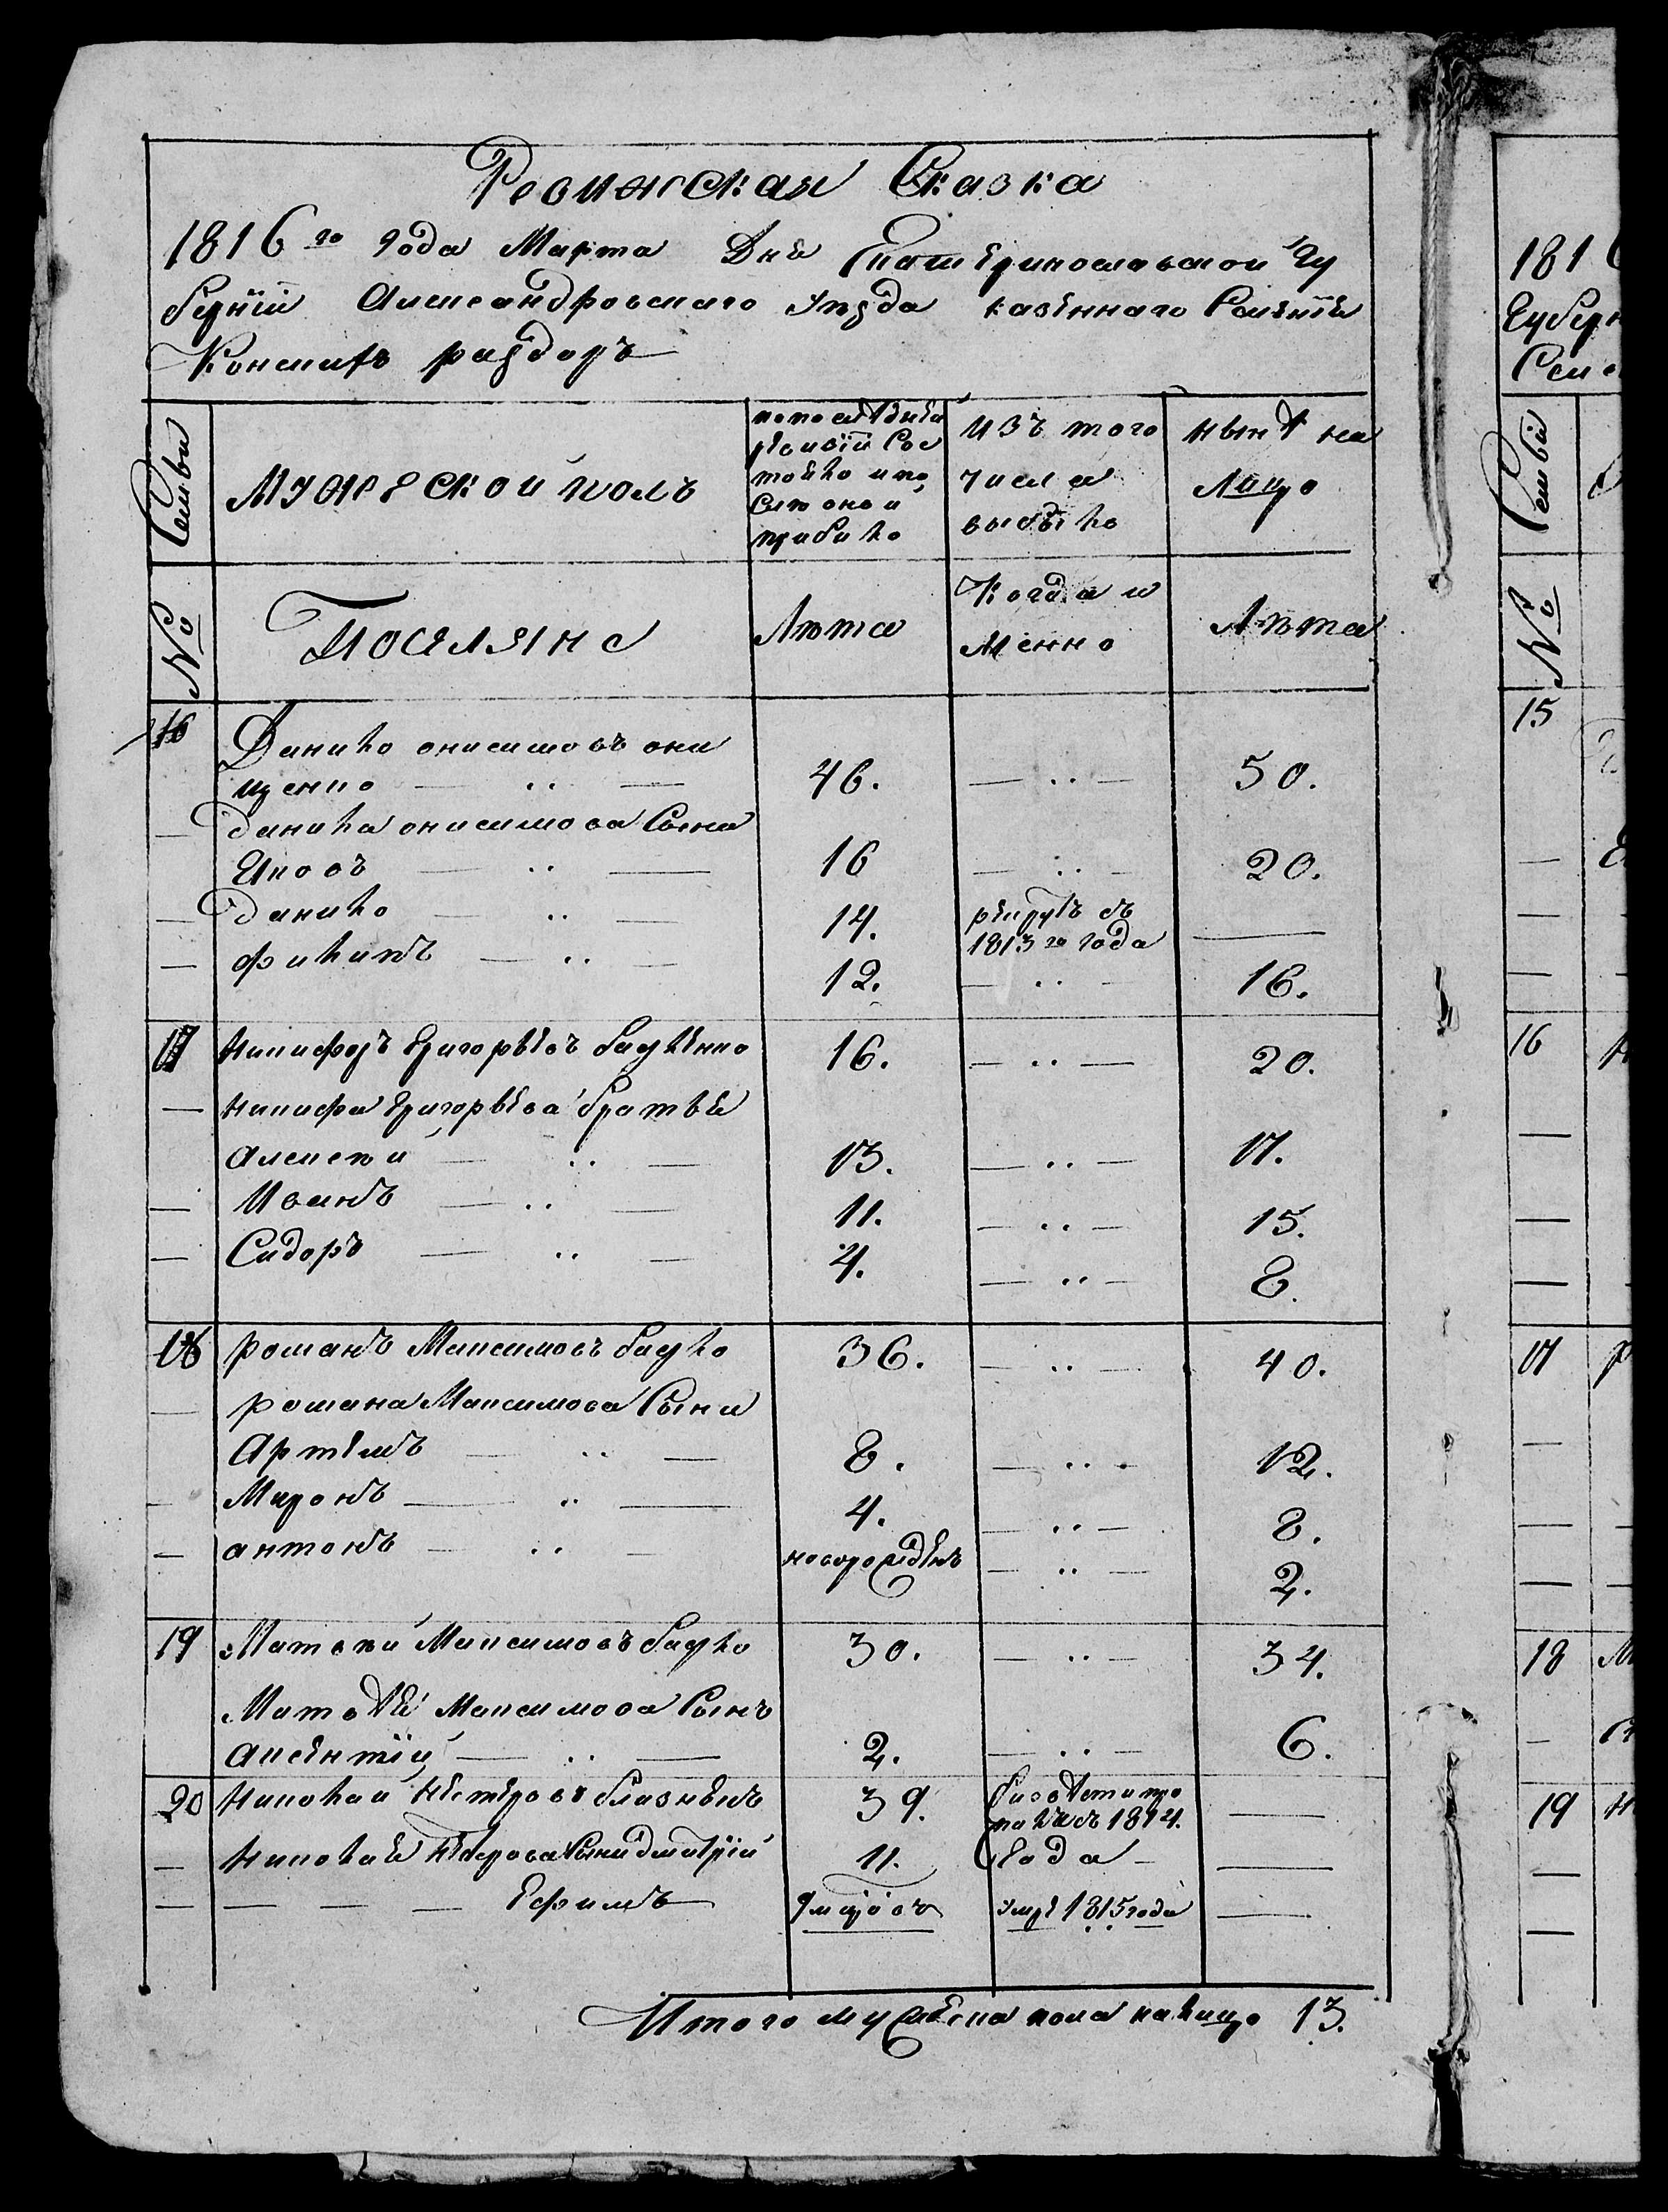 Ревижская Сказка
1816го года Марта Дня Екатеринославской Гу
берніи Александровскаго уезда казенного Селенія
Конскихъ раздоръ
Семьи
Мужескои полъ
по последнеи ревизіи Состояло и после онои прибыло
Изъ того числа выбыло
ныне на лицо
№
Поселяне
Лета
Когда и менно
Лета
16 Данило онисимовъ они
щенко — .. — 46. — .. — 50.
— данила онисимова Сына
Яковъ — .. — 16 — .. — 20.
— данило — .. — 14. рекрутъ въ 1813го года —
— филипъ — .. — 12. — .. — 16.
17 никифоръ Григорьевъ 16. — .. — 20.
— никифра Григорьева братья
алексеи — .. — 13. — .. — 17.
— Иванъ — .. — 11. — .. — 15.
— Сидоръ — .. — 4. — .. — 8.
18 романъ Максимовъ 36. — .. — 40.
— романа Максимова Сыны
Артемъ — .. — 8. — .. — 12.
— Миронъ — .. — 4. — .. — 8.
— антонъ — .. — новорожденъ — .. — 2.
19 Матвеи Максимовъ 30. — .. — 34.
Матвея Максимова Сынъ
авсентіи — .. — 2. — .. — 6.
20 николаи нестеровъ близнецъ 39. безвестно 1814. —
— николая нестерова Сыни дмитріи 11. года — —
— — — — Ефимъ умре 1815 года —
Итого мужеска пола налицо 13.
1816
Губерн
Сел
Семьи
№
15
—
—
—
16
—
—
—
17
—
—
—
18
—
19
—
—